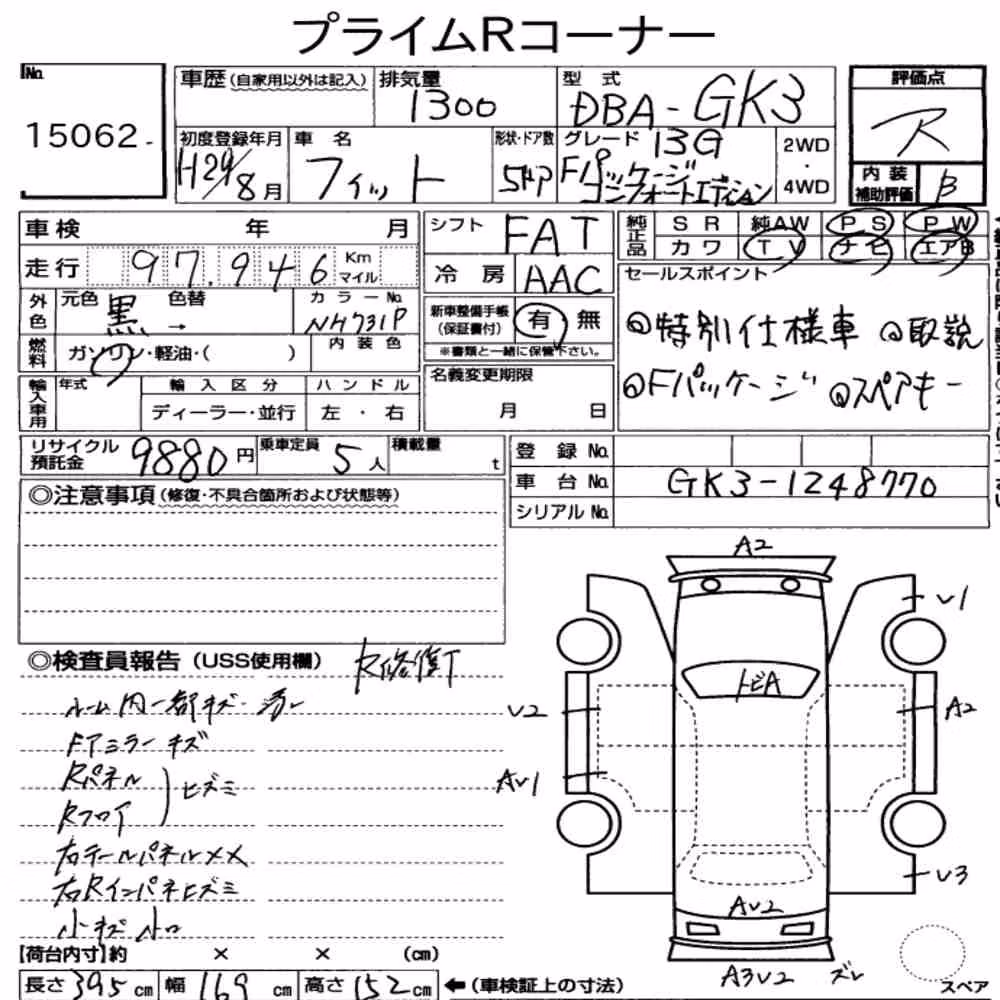 プライムRコーナー
No. 15062-
車歴(自家用以外は記入) 排気量 1300 型式 DBA-GK3
初度登録年月 H29/8月 車名 フィット 形状・ドア数 5ドア グレード 13G Fパッケージ コンフォートエディション 2WD・4WD
評価点 R
内装補助評価 B
車検 年 月
走行 97,946 Km マイル
外色 元色 黒 色替 → カラーNo. NH731P
燃料 ガソリン・軽油・( ) 内装色
輸入車用 年式 輸入区分 ハンドル
ディーラー・並行 左・右
シフト FAT
冷房 AAC
新車整備手帳(保証書付) 有 無
※書類と一緒に保管下さい。
名義変更期限
月 日
純正品 SR 純AW PS PW
カワ TV ナビ エアB
セールスポイント
◎特別仕様車 ◎取説
◎Fパッケージ ◎スペアキー
リサイクル預託金 9880円 乗車定員 5人 積載量 t
登録No.
車台No. GK3-1248770
シリアルNo.
◎注意事項(修復・不具合箇所および状態等)
◎検査員報告(USS使用欄) R修復
ルーム内一部キズ・汚レ
Fアミラーキズ
Rパネル
Rフロア
ヒズミ
右テールパネルメメ
右Rインパネヒズミ
小キズ 小凹
A2
V1
トビA
V2
A2
AV1
V3
AV2
A3V2 ズレ
スペア
【荷台内寸】約 × × (cm)
長さ 395cm 幅 169cm 高さ 152cm ←(車検証上の寸法)